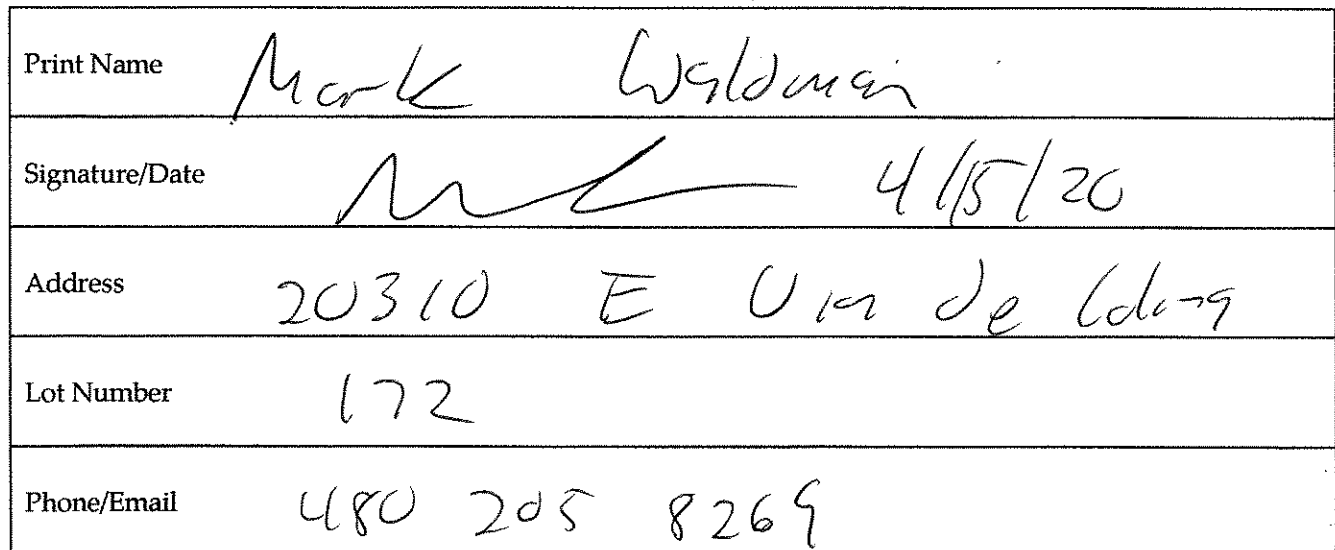 Print Name Mark Waldman
Signature/Date 4/15/20
Address 20310 E Via de
Lot Number 172
Phone/Email 480 205 8269